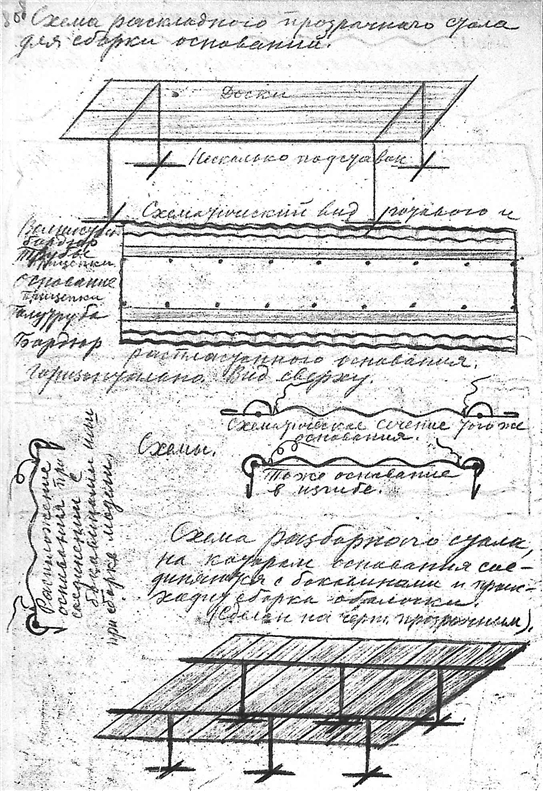 Схема раскладного прозрачного стола
для сборки оснований.
Доски
Несколько подставок
Схематический вид готового и
бордюр
Трубы
Прищепки
Основание
прищепки
Полутруба
Бордюр
распластанного основания.
Горизонтально. Вид сверху.
Схематическая сечение того же
основания.
Схемы.
То же основание
в изгибе.
Расположение
основания при
соединении с
боковинами или
при сборке модели.
Схема разборного стола,
на котором основания сое-
диняются с боковинами и
сборка оболочки.
(Сделан на черт. прозрачным).